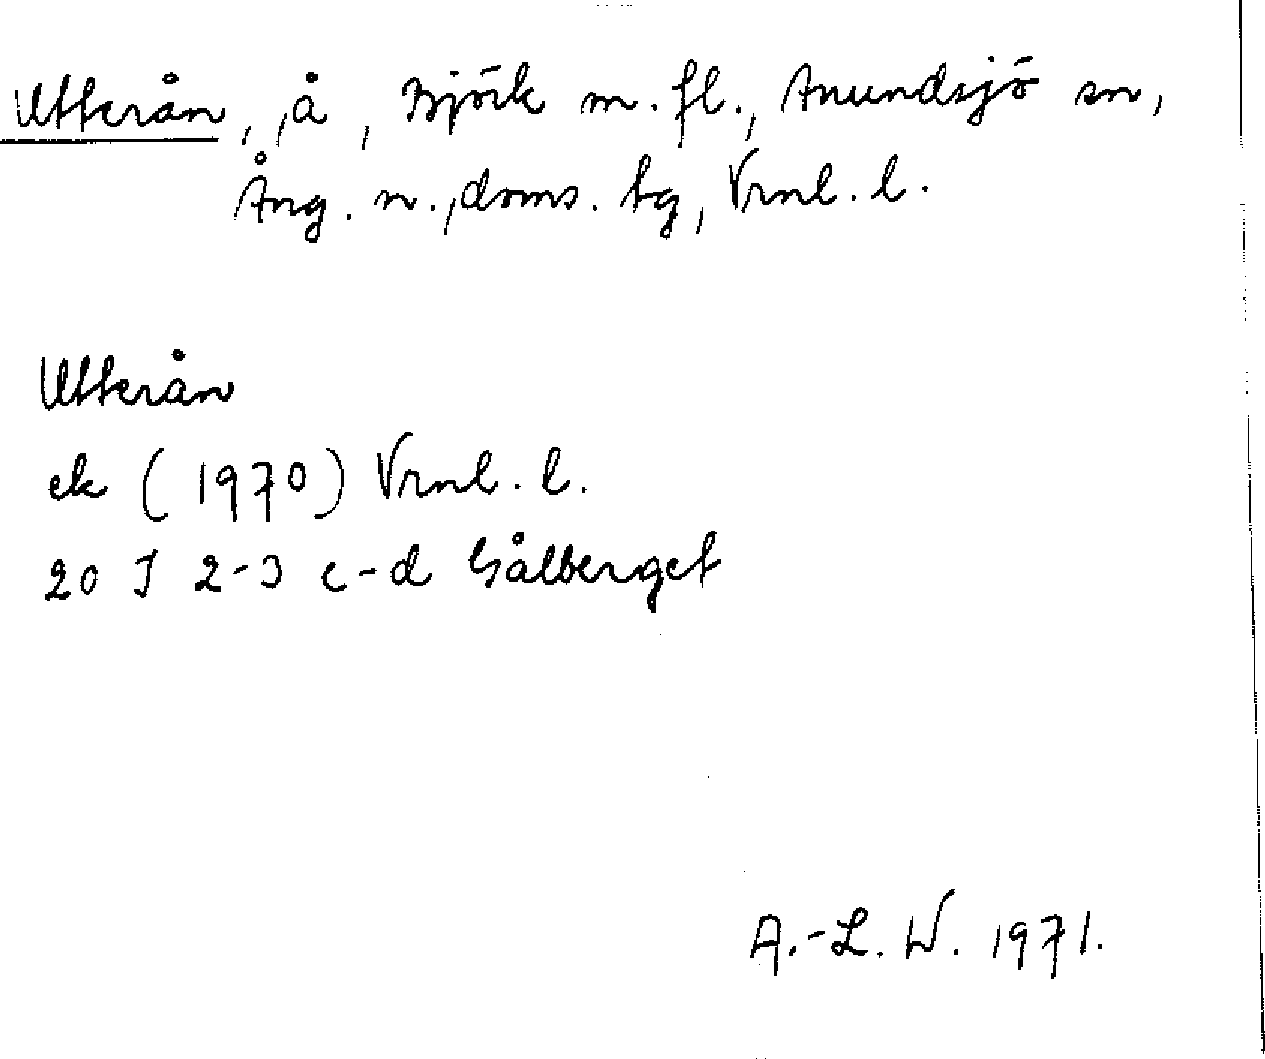 Utterån, å, Björk m. fl., Anundsjö sn,
Ång. n., doms. tg, Vrnl. l.
Utterån
ek (1970) Vrnl. l.
20 J 2-3 c-d Gålberget
A.-L. W. 1971.